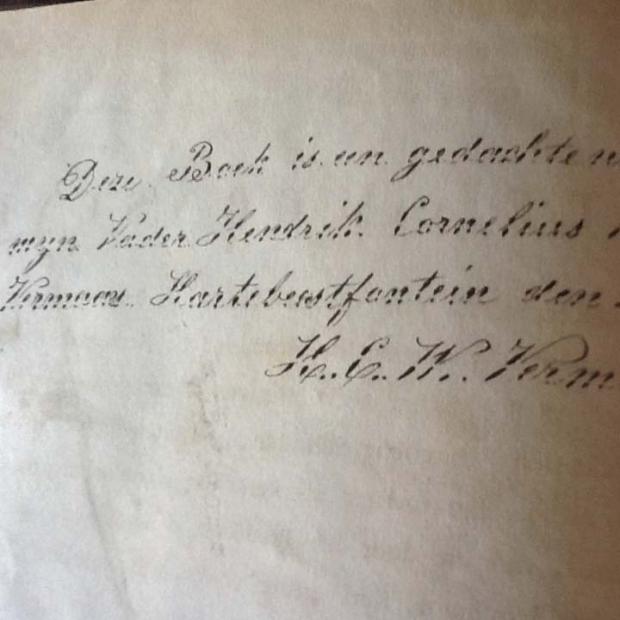 Deze Boek is een gedachten
myn Vader Hendrik Cornelius
Vermaas Hartebeestfontein den
H. C. W. Verm